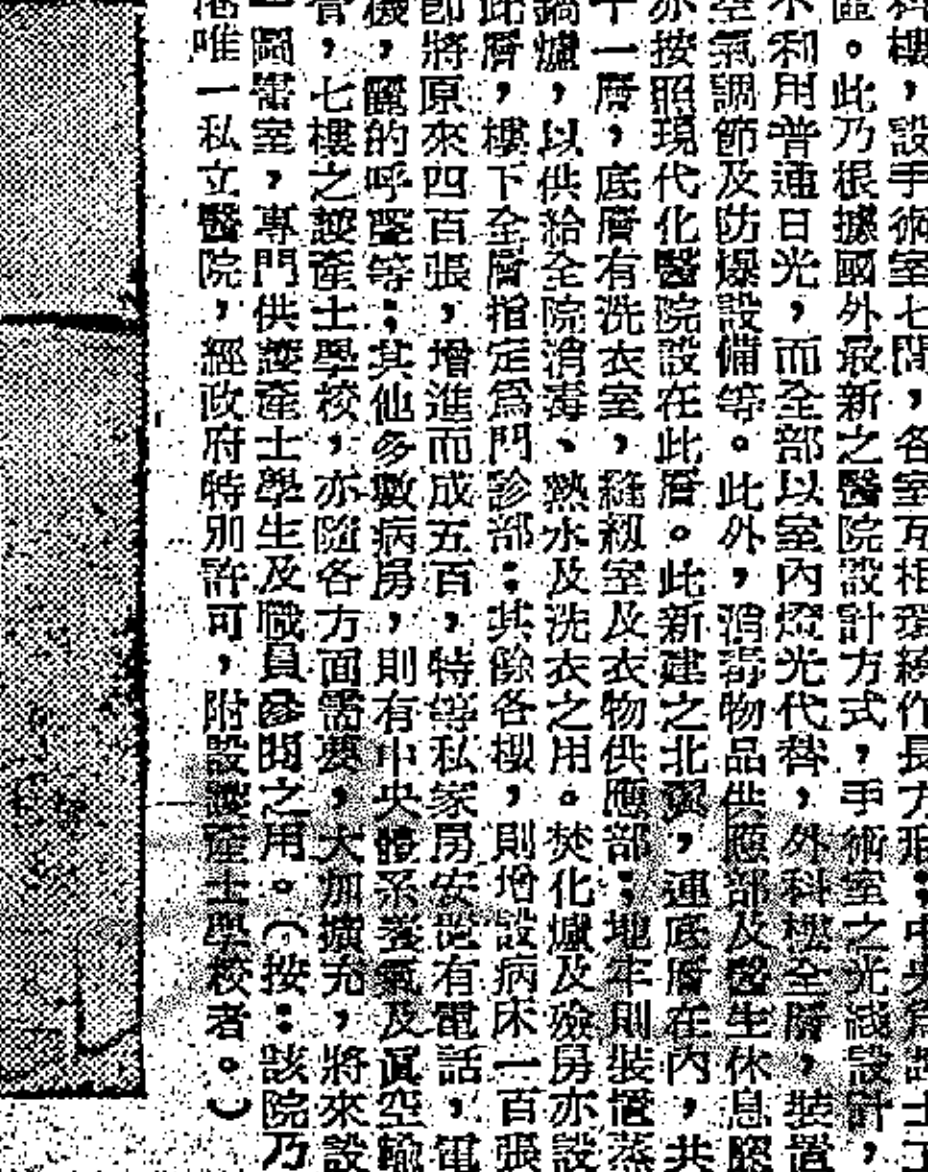 樓，設手術室七間，各室互相環繞作長方形；中央爲護士工
區。此乃根據國外最新之醫院設計方式，手術室之光綫設計，
不利用普通日光，而全部以室內燈光代替，外科樓全層，裝置
空氣調節及防爆設備等。此外，消毒物品供應部及醫生休息廳
亦按照現代化醫院設在此層。此新建之北翼，連底層在內，共
十一層，底層有洗衣室，縫紉室及衣物供應部；地牢則裝置蒸
鍋爐，以供給全院消毒、熱水及洗衣之用。焚化爐及殮房亦設
此層，樓下全層指定爲門診部；其餘各樓，則增設病床一百張
即將原來四百張，增進而成五百，特等私家房安裝有電話，電
機，醫的呼壓等；其他多數病房，則有中央體系養氣及眞空輸
管，七樓之護產士學校，亦隨各方面需要，大加擴充，將來設
圖書室，專門供護產士學生及職員參閱之用。（按：該院乃
港唯一私立醫院，經政府特別許可，附設護產士學校者。）